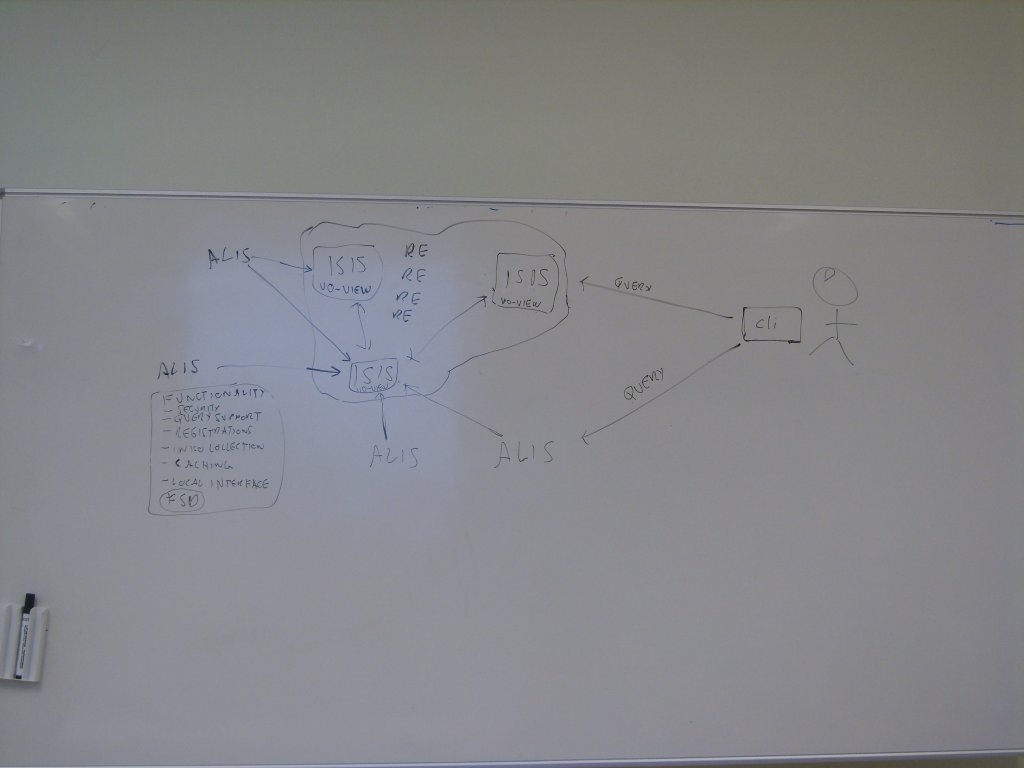 ALIS
ISIS
VO-VIEW
RE
RE
RE
RE
ISIS
VO-VIEW
QUERY
cli
ALIS
ISIS
VO-VIEW
QUERY
FUNCTIONALITY
- SECURITY
- QUERY SUPPORT
- REGISTRATIONS
- INFO COLLECTION
- CACHING
- LOCAL INTERFACE
ALIS
ALIS